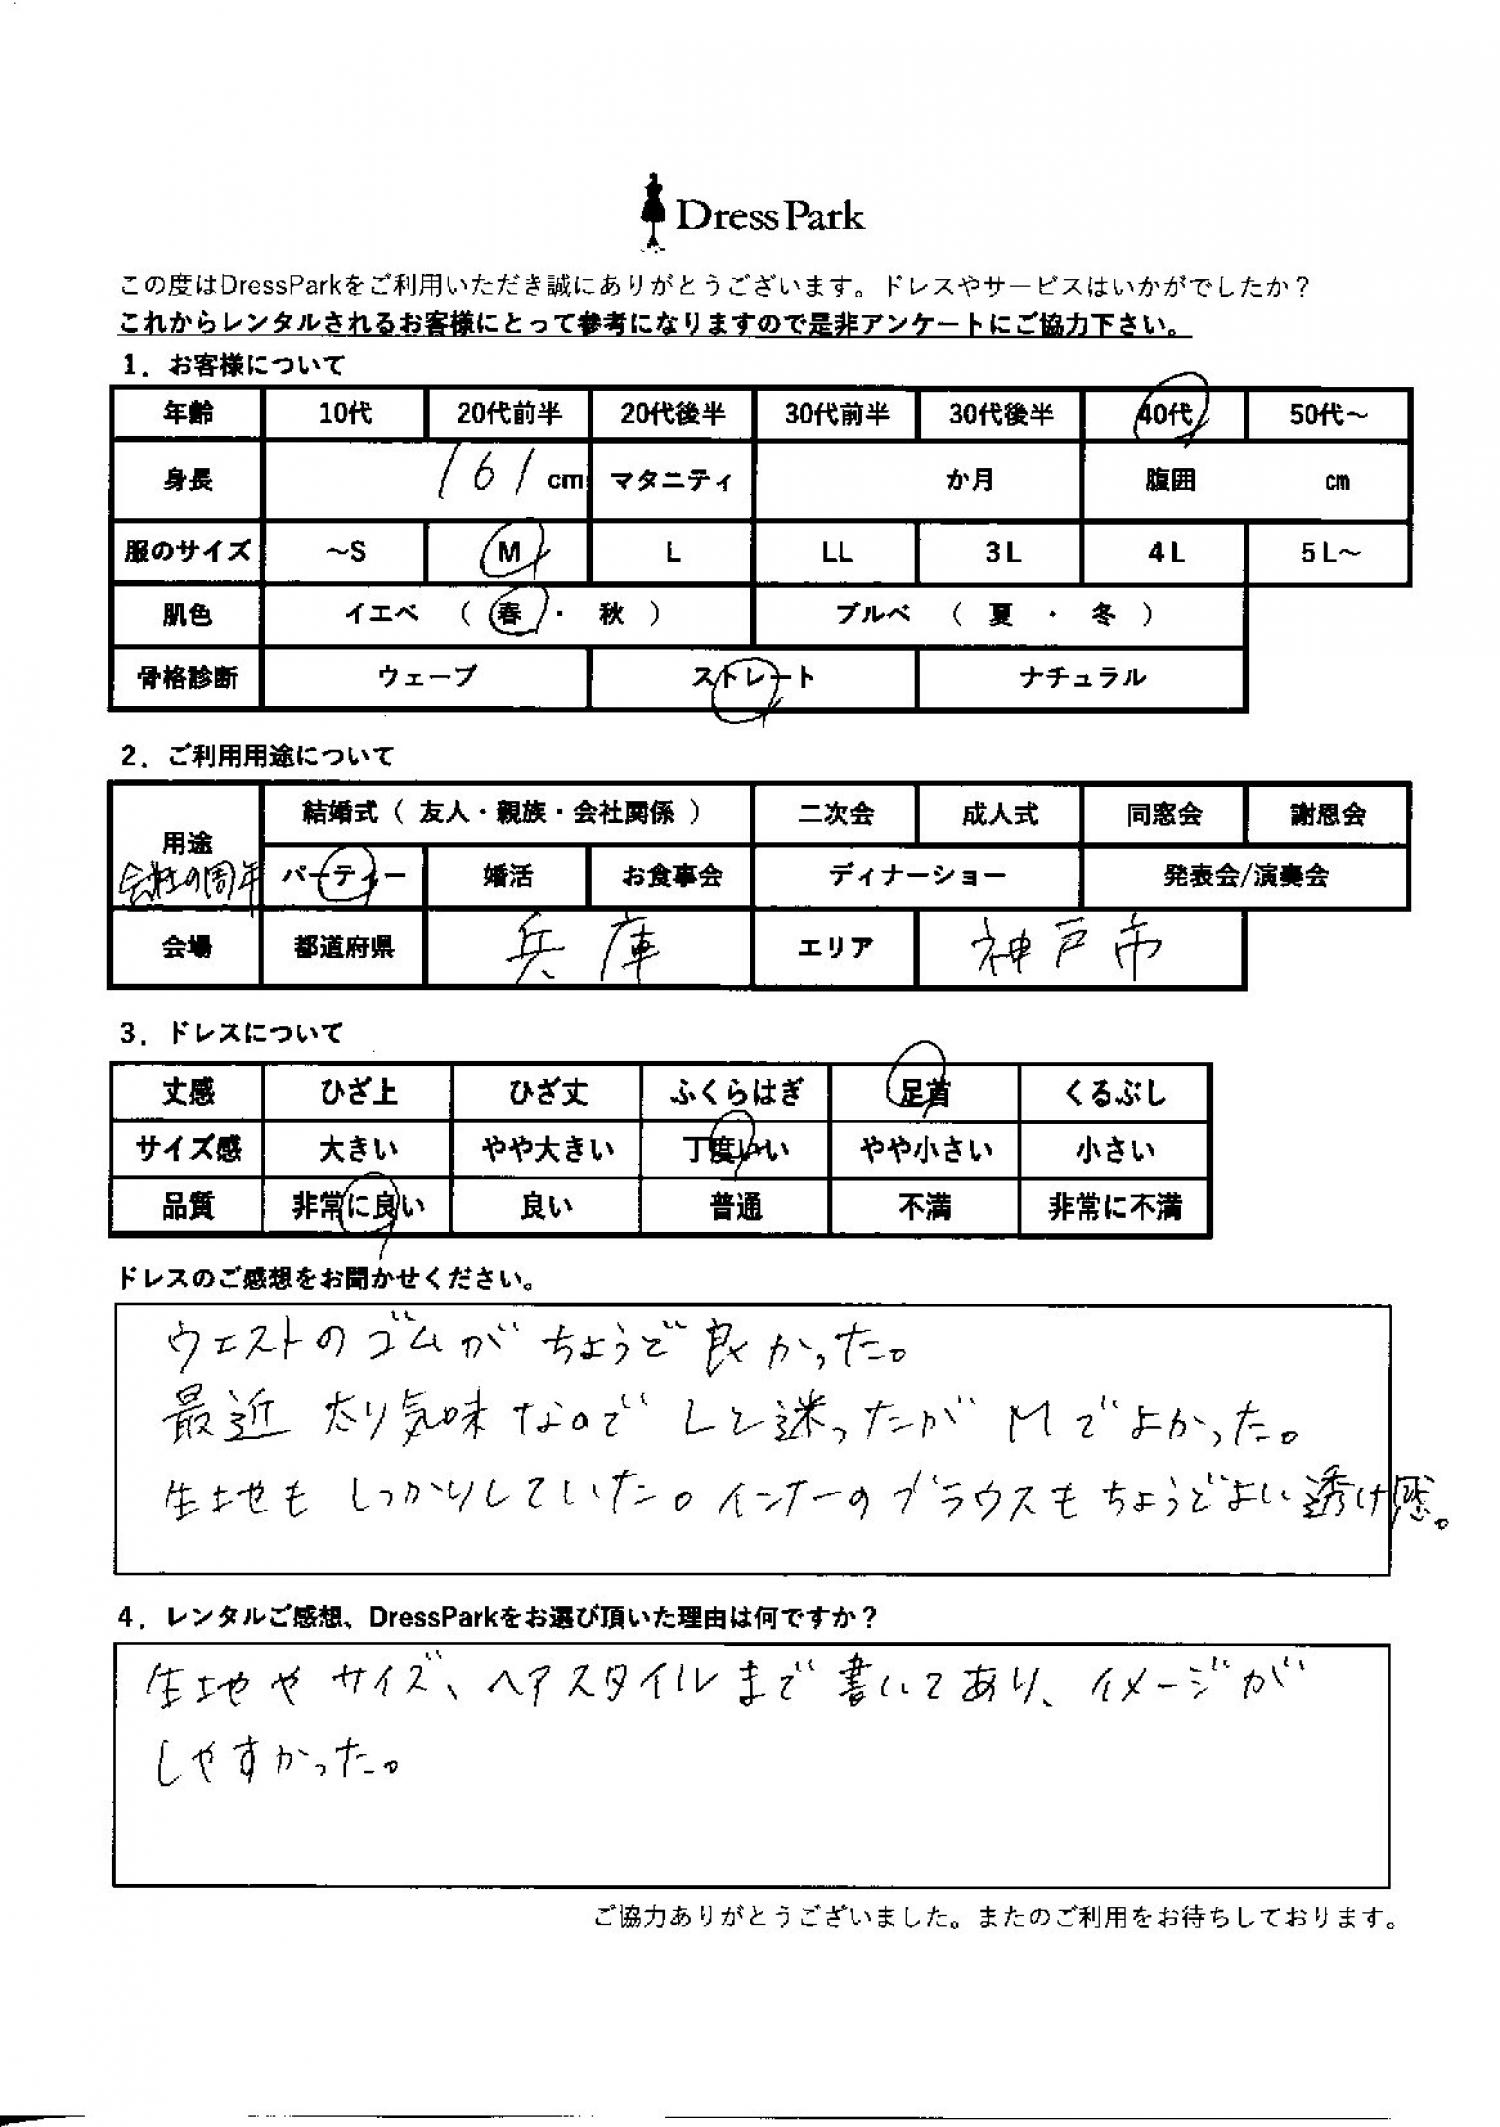 Dress Park
この度はDressParkをご利用いただき誠にありがとうございます。ドレスやサービスはいかがでしたか？
これからレンタルされるお客様にとって参考になりますので是非アンケートにご協力下さい。
1．お客様について
年齢 10代 20代前半 20代後半 30代前半 30代後半 40代 50代～
身長 161 cm マタニティ か月 腹囲 cm
服のサイズ ～S M L LL 3L 4L 5L～
肌色 イエベ （ 春 ・ 秋 ） ブルべ （ 夏 ・ 冬 ）
骨格診断 ウェーブ ストレート ナチュラル
2．ご利用用途について
用途 結婚式（ 友人・親族・会社関係 ） 二次会 成人式 同窓会 謝恩会
会社の周年 パーティー 婚活 お食事会 ディナーショー 発表会/演奏会
会場 都道府県 兵庫 エリア 神戸市
3．ドレスについて
丈感 ひざ上 ひざ丈 ふくらはぎ 足首 くるぶし
サイズ感 大きい やや大きい 丁度いい やや小さい 小さい
品質 非常に良い 良い 普通 不満 非常に不満
ドレスのご感想をお聞かせください。
ウエストのゴムがちょうど良かった。
最近太り気味なのでLと迷ったがMでよかった。
生地もしっかりしていた。インナーのブラウスもちょうどよい透け感。
4．レンタルご感想、DressParkをお選び頂いた理由は何ですか？
生地やサイズ、ヘアスタイルまで書いてあり、イメージが
しやすかった。
ご協力ありがとうございました。またのご利用をお待ちしております。